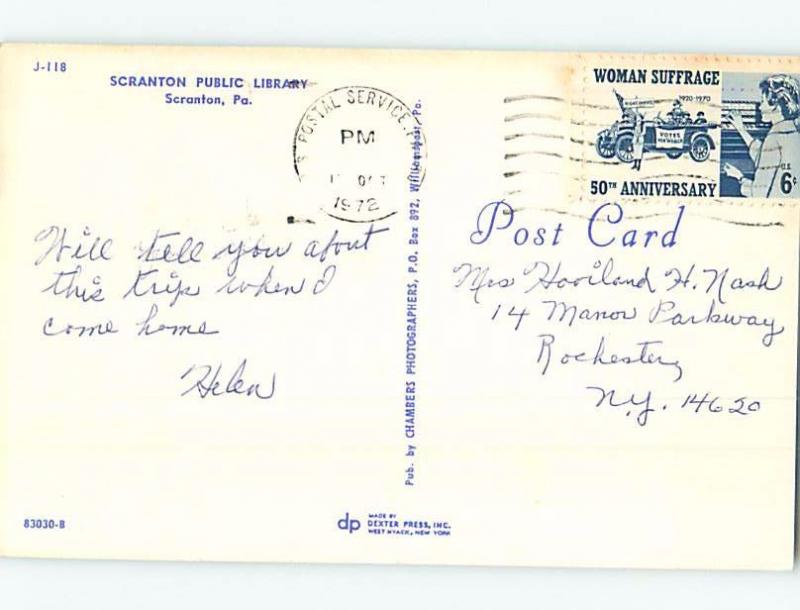 J-118
SCRANTON PUBLIC LIBRARY
Scranton, Pa.
POSTAL SERVICE
PM
OCT
1972
WOMAN SUFFRAGE
1920-1970
VOTES
FOR WOMEN
U.S.
6¢
50TH ANNIVERSARY
Will tell you about
this trip when I
come home
Helen
Pub. by CHAMBERS PHOTOGRAPHERS, P.O. Box 892, Williamsport, Pa.
Post Card
Mrs Haviland H. Nash
14 Manor Parkway
Rochester,
N.Y. 14620
83030-B
dp
MADE BY
DEXTER PRESS, INC.
WEST NYACK, NEW YORK